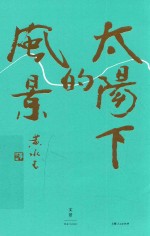 太陽下
的
風景
黄永玉